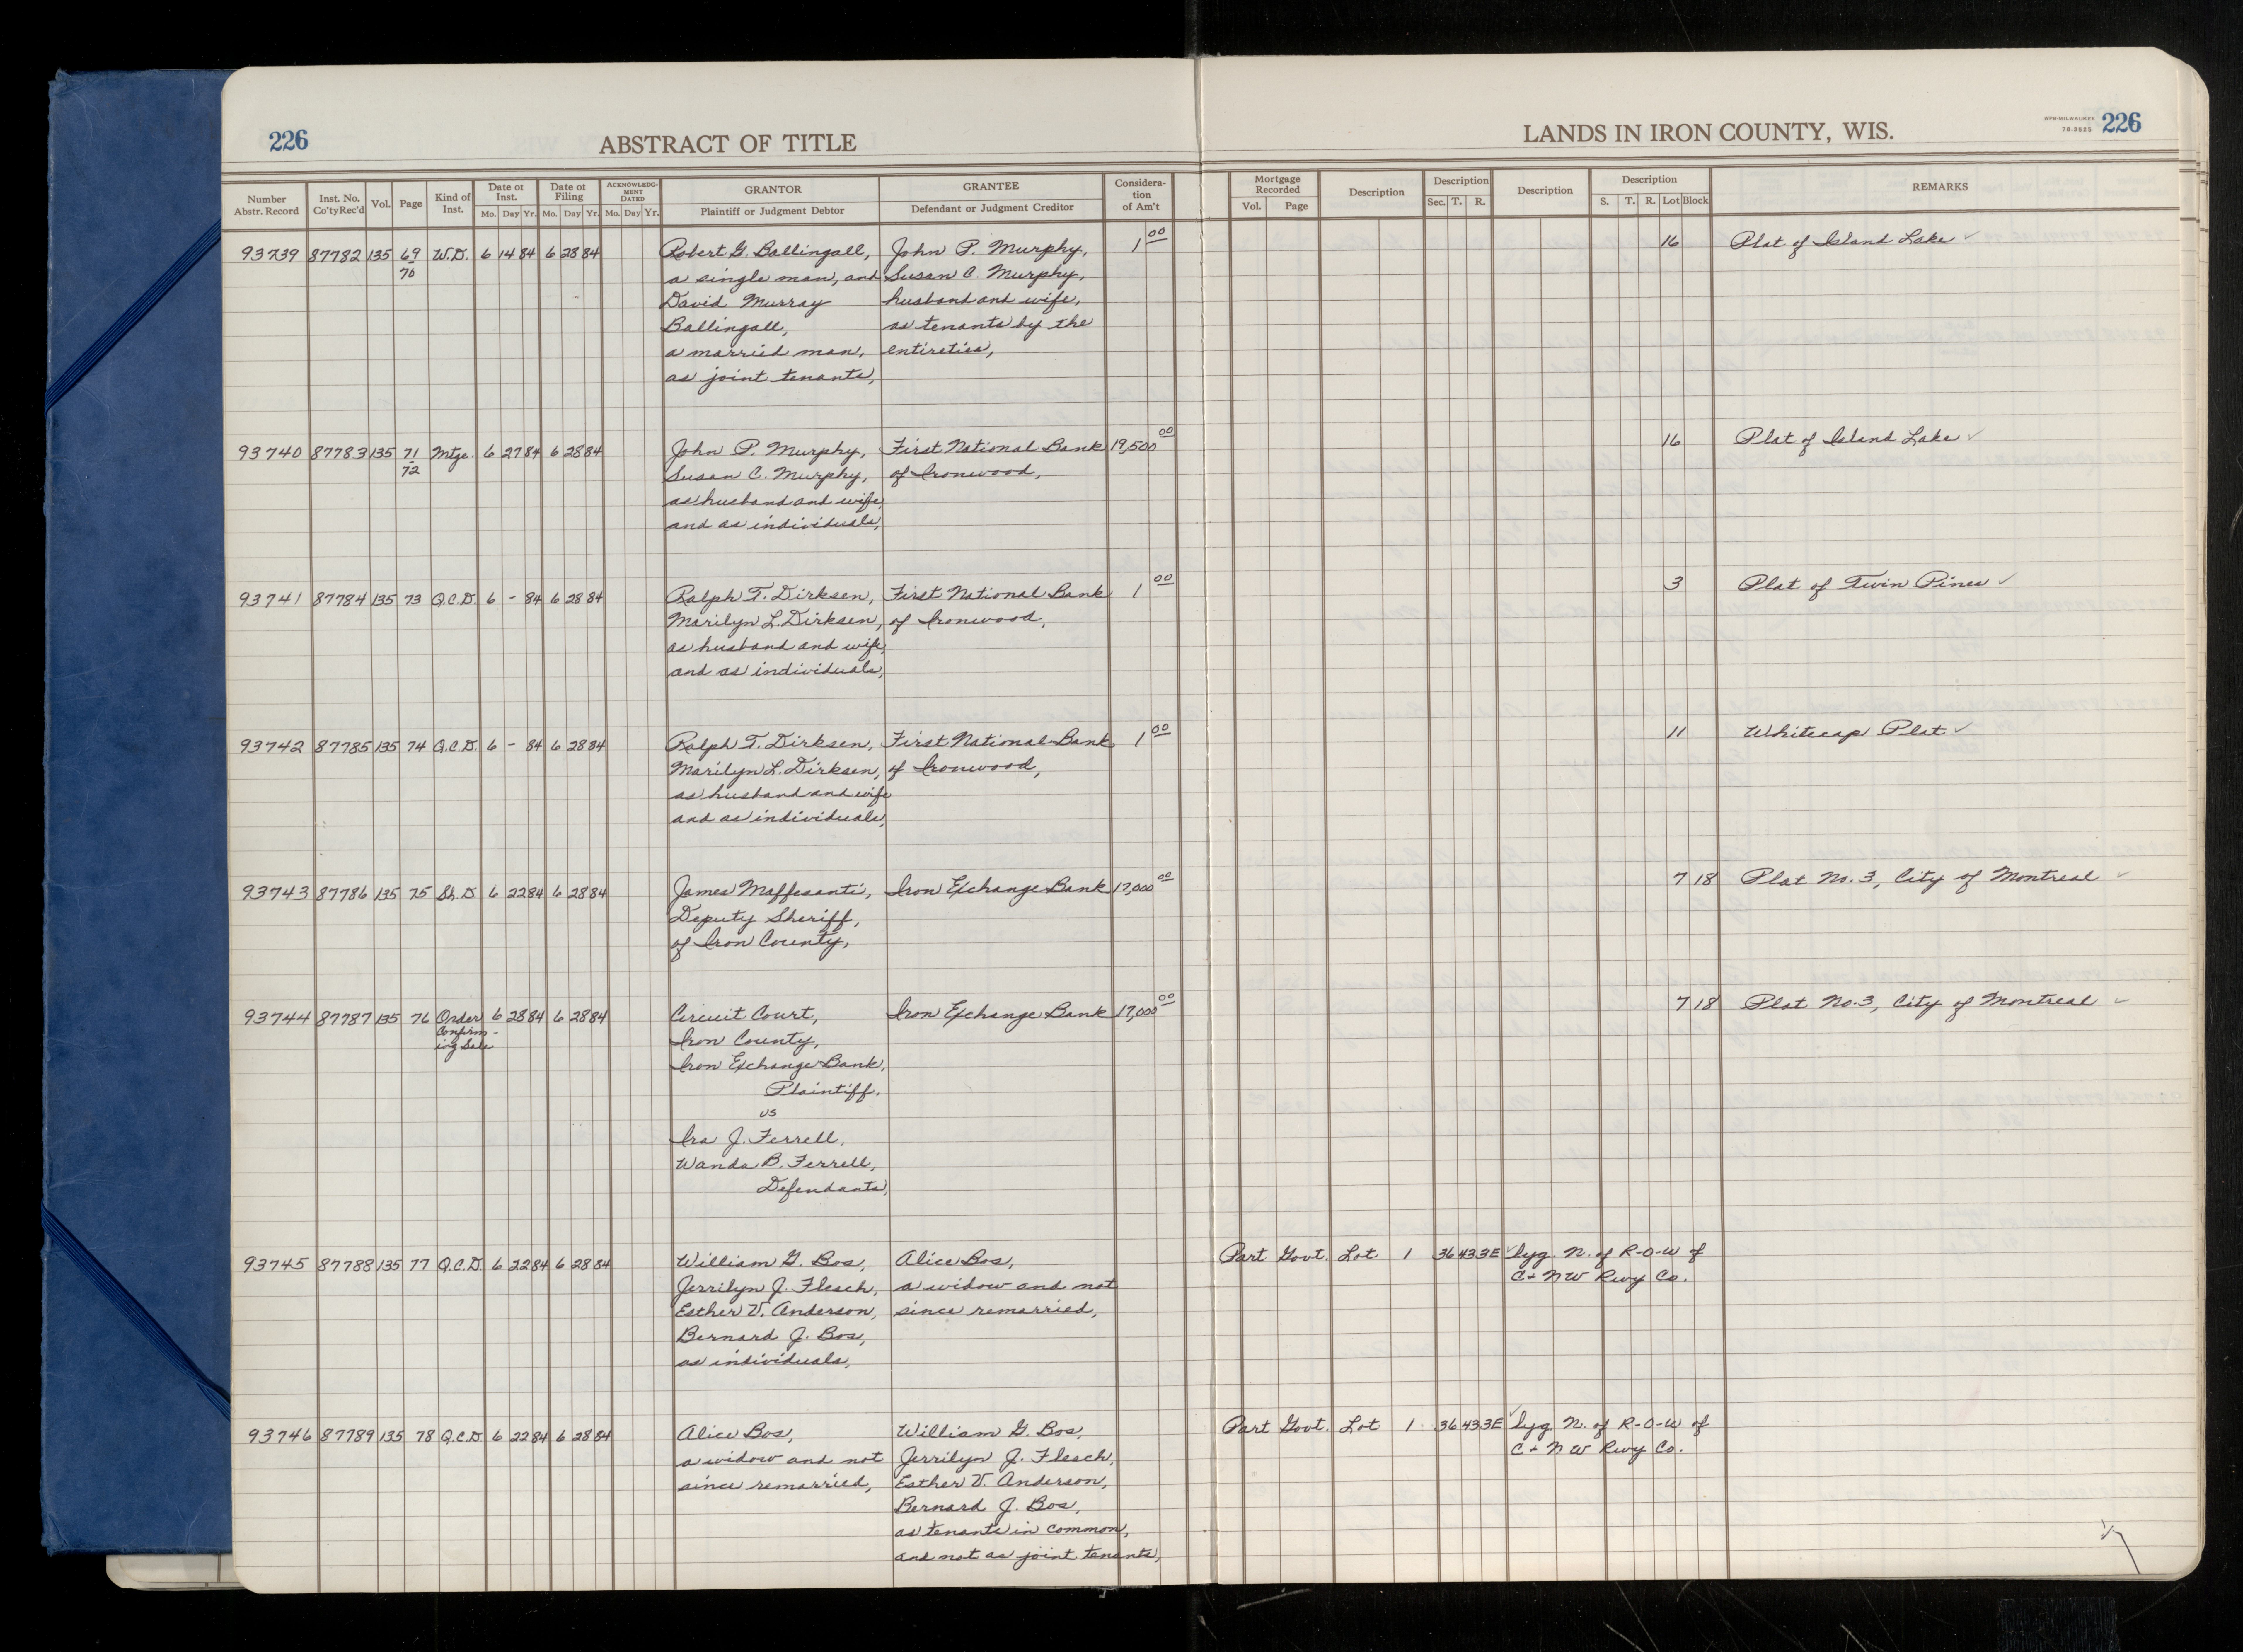 226
ABSTRACT OF TITLE
LANDS IN IRON COUNTY, WIS.
WPB-MILWAUKEE
78-3525
226
Number Abstr. Record | Inst. No. Co'ty Rec'd | Vol. | Page | Kind of Inst. | Date of Inst. Mo. Day Yr. | Date of Filing Mo. Day Yr. | ACKNOWLEDGMENT DATED Mo. Day Yr. | GRANTOR Plaintiff or Judgment Debtor | GRANTEE Defendant or Judgment Creditor | Consideration of Am't | Mortgage Recorded Vol. Page | Description | Description Sec. T. R. | Description | Description S. T. R. Lot Block | REMARKS
93739 87782 135 69 W.D. 6 14 84 6 28 84 Robert G. Ballingall, John P. Murphy, 1 00 16 Plat of Island Lake ✓
70 a single man, and Susan C. Murphy,
David Murray husband and wife,
Ballingall, as tenants by the
a married man, entireties,
as joint tenants,
93740 87783 135 71 Mtge. 6 27 84 6 28 84 John P. Murphy, First National Bank 19,500 00 16 Plat of Island Lake ✓
72 Susan C. Murphy, of Ironwood,
as husband and wife,
and as individuals,
93741 87784 135 73 Q.C.D. 6 - 84 6 28 84 Ralph T. Dirksen, First National Bank 1 00 3 Plat of Twin Pines ✓
Marilyn L. Dirksen, of Ironwood,
as husband and wife,
and as individuals,
93742 87785 135 74 Q.C.D. 6 - 84 6 28 84 Ralph T. Dirksen, First National Bank 1 00 11 Whitecap Plat ✓
Marilyn L. Dirksen, of Ironwood,
as husband and wife
and as individuals,
93743 87786 135 75 Sh. D. 6 22 84 6 28 84 James Maffesanti, Iron Exchange Bank 17,000 00 7 18 Plat No. 3, City of Montreal ✓
Deputy Sheriff,
of Iron County,
93744 87787 135 76 Order 6 28 84 6 28 84 Circuit Court, Iron Exchange Bank 17,000 00 7 18 Plat No. 3, City of Montreal ✓
Confirm- Iron County,
ing Sale Iron Exchange Bank,
Plaintiff.
vs
Ira J. Ferrell,
Wanda B. Ferrell,
Defendants,
93745 87788 135 77 Q.C.D. 6 22 84 6 28 84 William G. Bos, Alice Bos, Part Govt. Lot 1 36 43 3E ✓ lyg. N. of R-O-W of
Jerrilyn J. Flesch, a widow and not C + NW Rwy Co.
Esther V. Anderson, since remarried,
Bernard J. Bos,
as individuals,
93746 87789 135 78 Q.C.D. 6 22 84 6 28 84 Alice Bos, William G. Bos, Part Govt. Lot 1 36 43 3E ✓ lyg. N. of R-O-W of
a widow and not Jerrilyn J. Flesch, C + NW Rwy Co.
since remarried, Esther V. Anderson,
Bernard J. Bos,
as tenants in common,
and not as joint tenants,